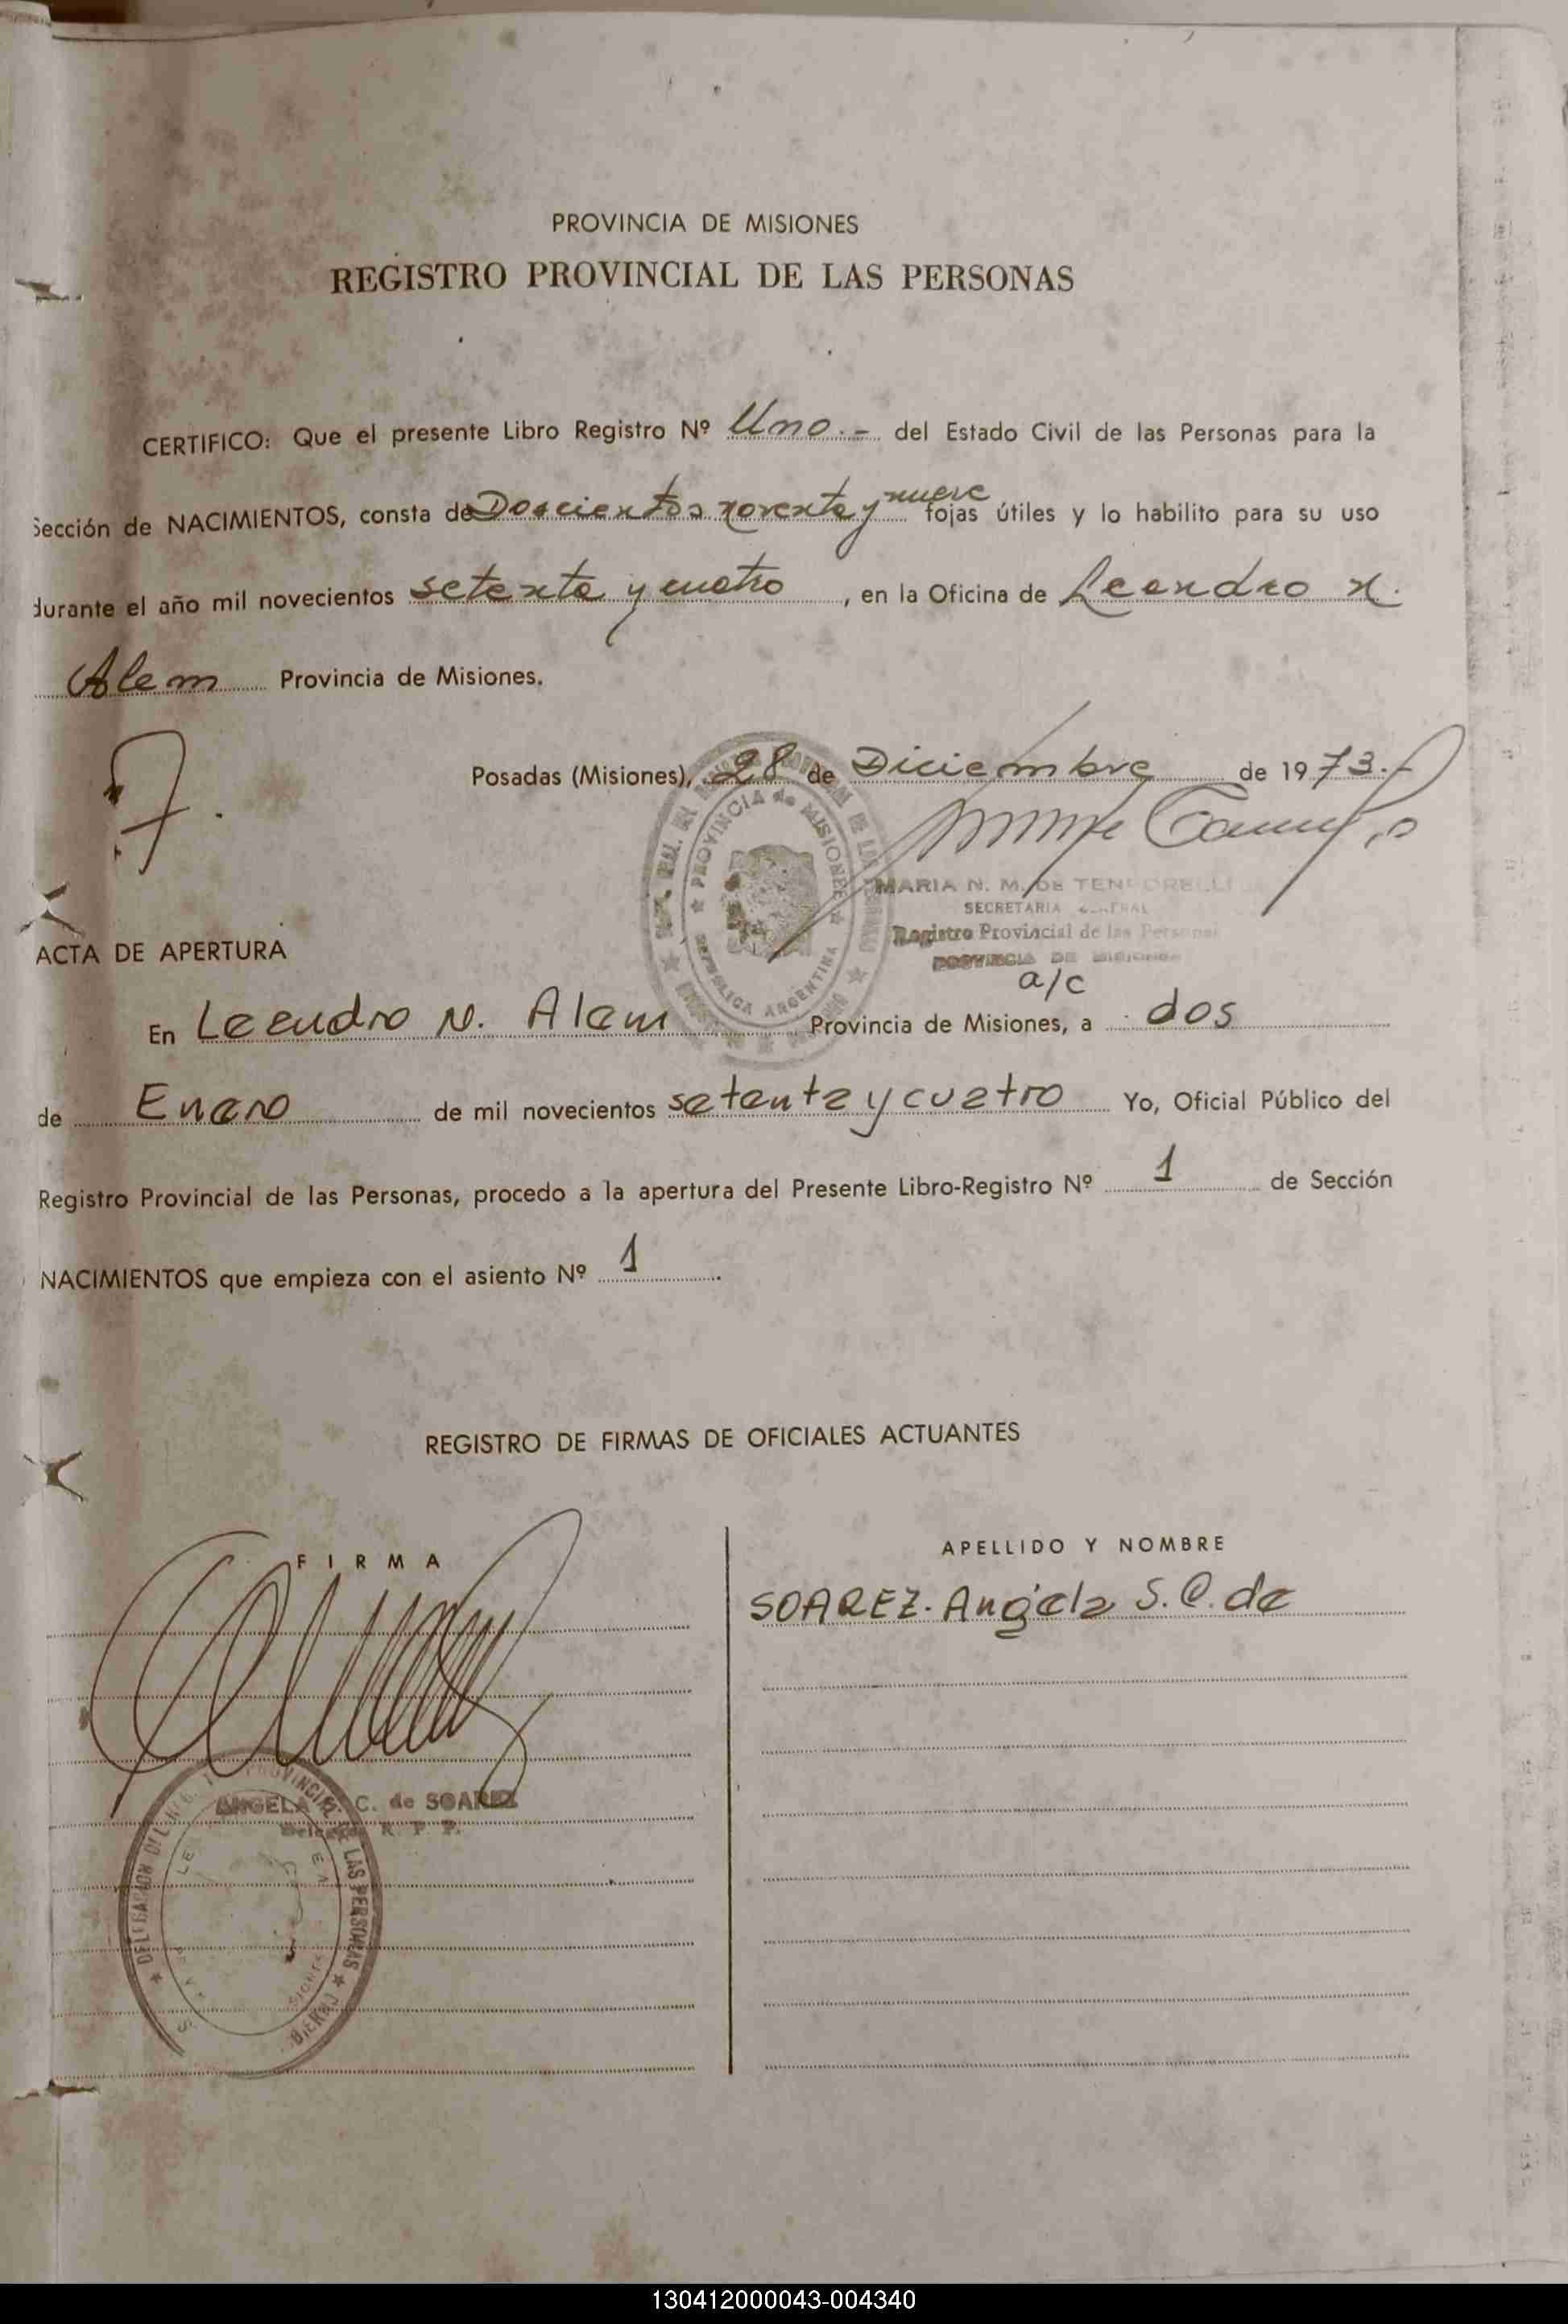 PROVINCIA DE MISIONES
REGISTRO PROVINCIAL DE LAS PERSONAS
CERTIFICO: Que el presente Libro Registro Nº Uno.- del Estado Civil de las Personas para la
Sección de NACIMIENTOS, consta de Doscientos noventa y nueve fojas útiles y lo habilito para su uso
durante el año mil novecientos setenta y cuatro, en la Oficina de Leandro N.
Alem Provincia de Misiones.
Posadas (Misiones), 28 de Diciembre de 1973.-
PROVINCIA de MISIONES
REPUBLICA ARGENTINA
MARIA N. M. DE
SECRETARIA GENERAL
Registro Provincial de las Personas
PROVINCIA DE MISIONES
a/c
ACTA DE APERTURA
En Leandro N. Alem Provincia de Misiones, a dos
de Enero de mil novecientos setenta y cuatro Yo, Oficial Público del
Registro Provincial de las Personas, procedo a la apertura del Presente Libro-Registro Nº 1 de Sección
NACIMIENTOS que empieza con el asiento Nº 1.
REGISTRO DE FIRMAS DE OFICIALES ACTUANTES
FIRMA
APELLIDO Y NOMBRE
SOAREZ. Angela S. C. de
ANGELA S. C. de SOAREZ
R. P. P.
DELEGACION DEL PROVINCIAL LAS PERSONAS
130412000043-004340